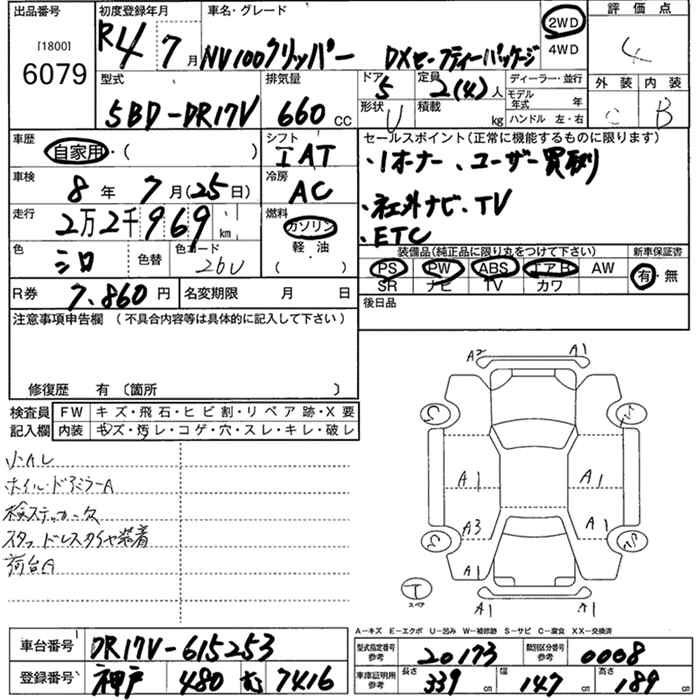 出品番号 初度登録年月 車名・グレード 評価点
[1800]
6079
R4 7月 NV100クリッパー DXセーフティーパッケージ 2WD 4WD 4
型式 排気量 ドア 定員 ディーラー・並行 外装 内装
5BD-DR17V 660cc 5 2(4)人 モデル年式 年 C B
形状 U 積載 kg ハンドル 左・右
車歴 シフト セールスポイント(正常に機能するものに限ります)
自家用・( ) IAT ・1オーナー、ユーザー買取り
車検 冷房
8年 7月(25日) AC ・社外ナビ・TV
走行 燃料
2万2千969km ガソリン ・ETC
色 色替 色コード 軽・油 装備品(純正品に限り丸をつけて下さい) 新車保証書
シロ 26U ( ) PS PW ABS エアB AW 有・無
SR ナビ TV カワ
R券 7.860円 名変期限 月 日 後日品
注意事項申告欄 (不具合内容等は具体的に記入して下さい)
修復歴 有 〔箇所 〕
検査員 FW キズ・飛石・ヒビ割・リペア跡・X要
記入欄 内装 キズ・汚レ・コゲ・穴・スレ・キレ・破レ
小凹レ
ホイル・ドアミラーA
検ステッカー欠
スタッドレスタイヤ装着
荷台A
A2 A1
C
A1 A1
A3 A1
C
A1 A1
T
スペア
A-キズ E-エクボ U-凹み W-補修跡 S-サビ C-腐食 XX-交換済
車台番号 DR17V-615253
型式指定番号 参考 20173 類別区分番号 参考 0008
登録番号 神戸 480 む 7416
車庫証明用 参考 長さ 339cm 幅 147cm 高さ 189cm